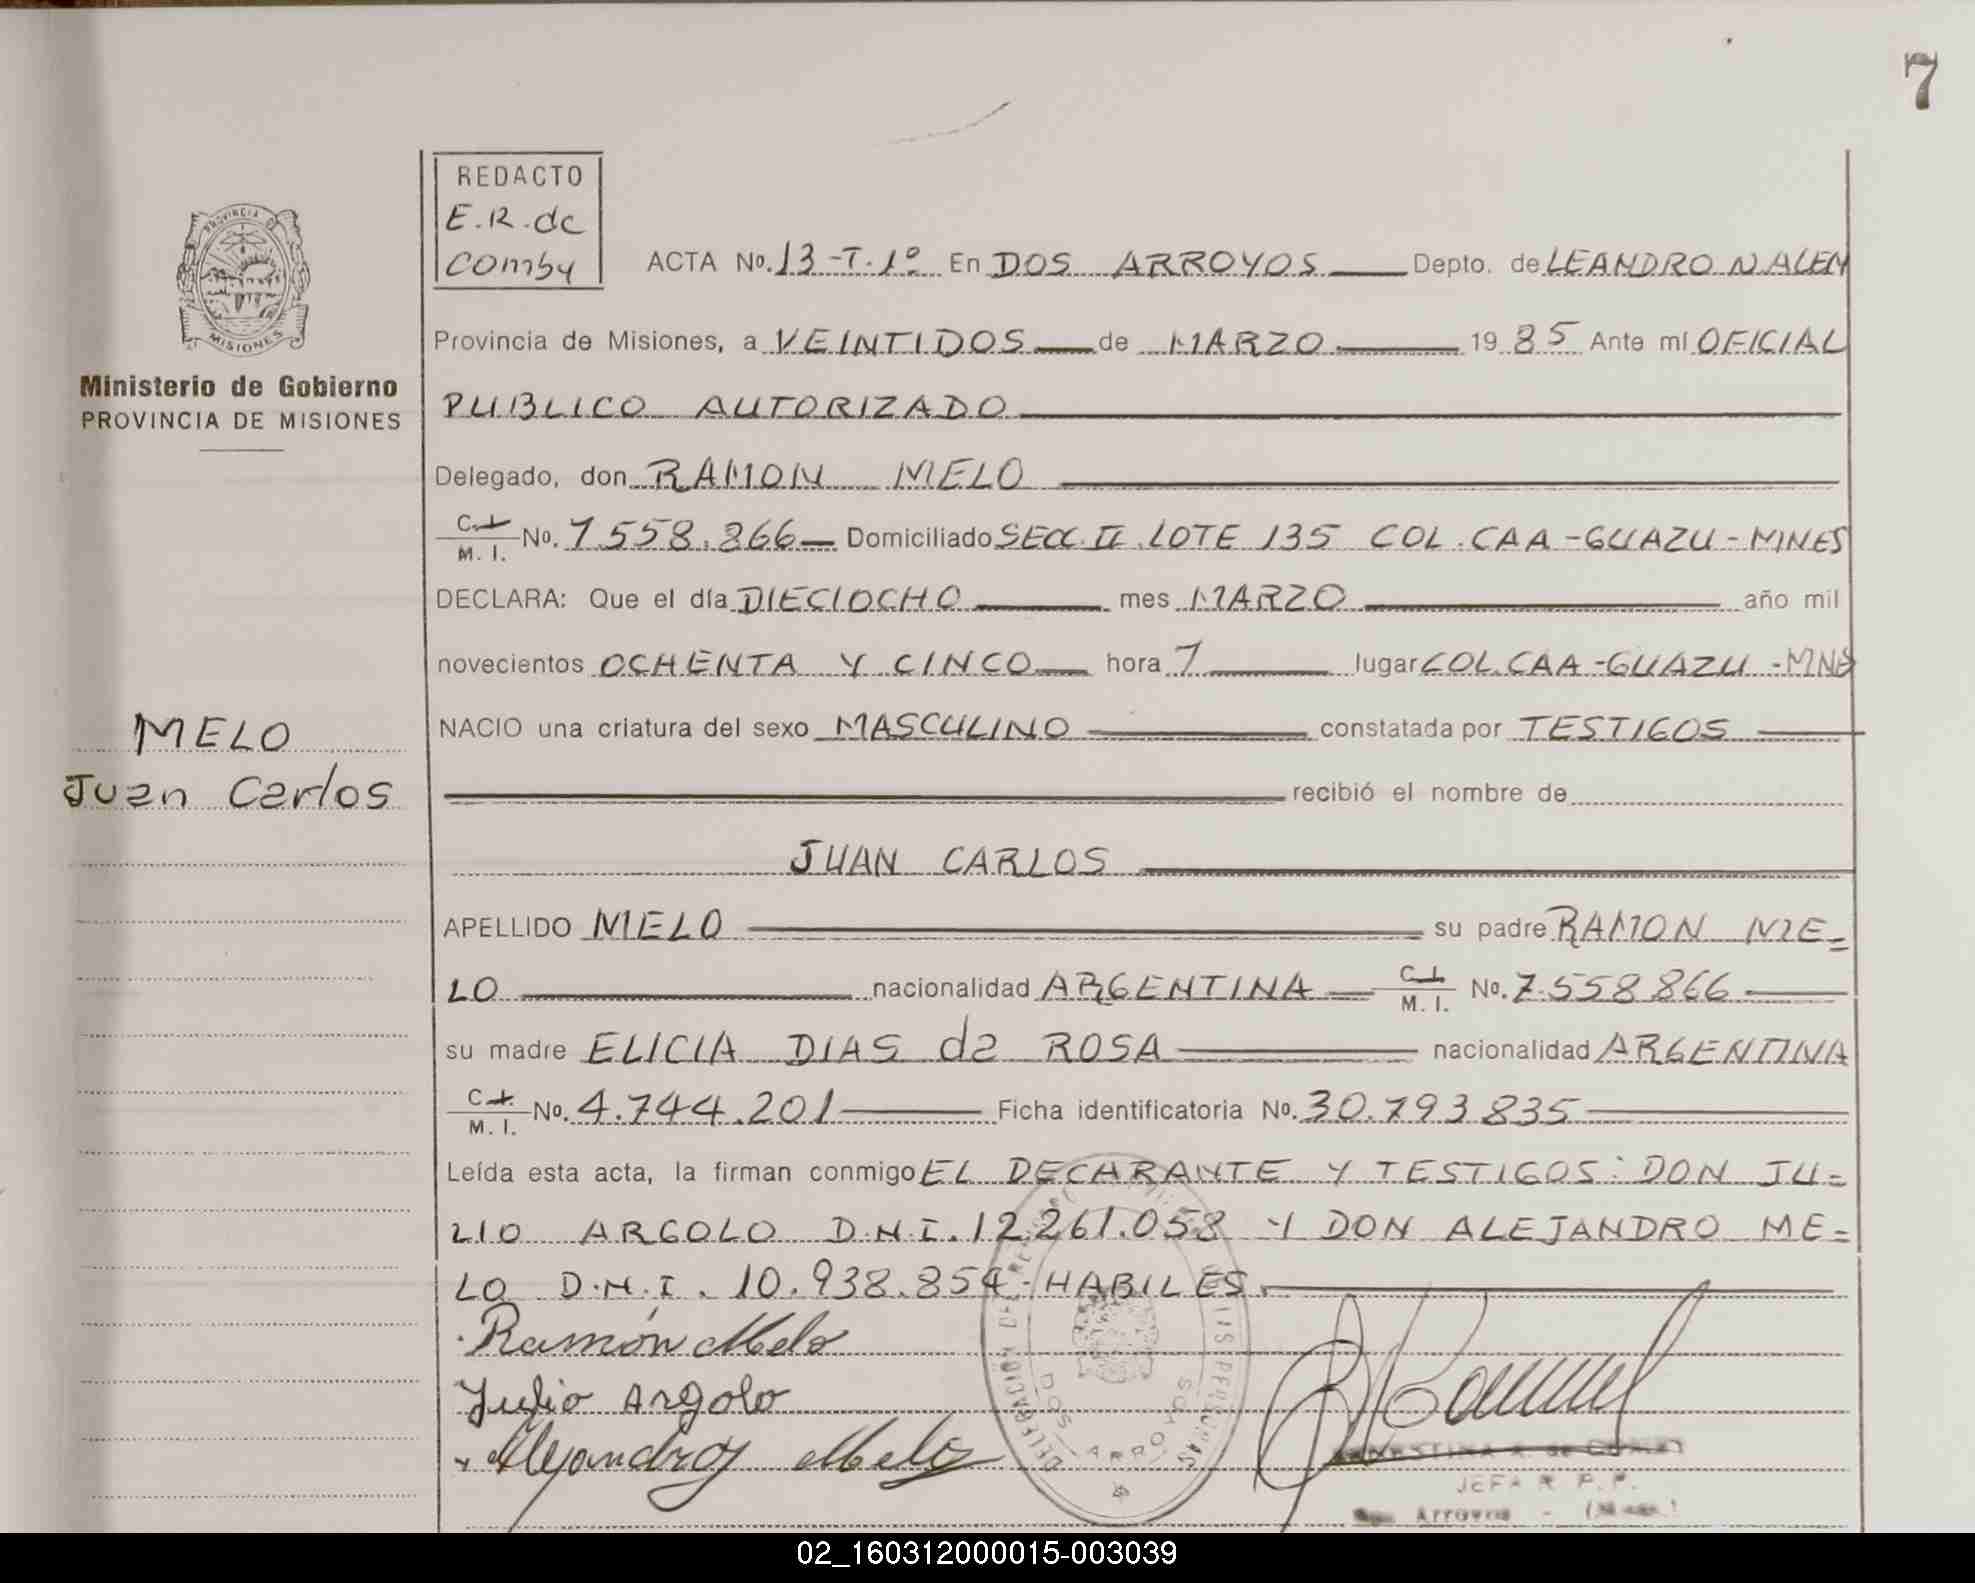 7
REDACTO
E.R. de
Comby
ACTA No. 13-T.1º En DOS ARROYOS Depto. de LEANDRO N ALEM
PROVINCIA DE
MISIONES
Provincia de Misiones, a VEINTIDOS de MARZO 19 85 Ante mí OFICIAL
Ministerio de Gobierno
PROVINCIA DE MISIONES
PUBLICO AUTORIZADO
Delegado, don RAMON MELO
C.I. M. I. No. 7.558.866 Domiciliado SECC. II. LOTE 135 COL. CAA-GUAZU-MNES
DECLARA: Que el día DIECIOCHO mes MARZO año mil
novecientos OCHENTA Y CINCO hora 7 lugar COL. CAA-GUAZU-MNES
MELO
Juan Carlos
NACIO una criatura del sexo MASCULINO constatada por TESTIGOS
recibió el nombre de
JUAN CARLOS
APELLIDO MELO su padre RAMON ME=
LO nacionalidad ARGENTINA C.I. M. I. No. 7.558.866
su madre ELICIA DIAS da ROSA nacionalidad ARGENTINA
C.I. M. I. No. 4.744.201 Ficha identificatoria No. 30.793.835
Leída esta acta, la firman conmigo EL DECHARANTE Y TESTIGOS: DON JU=
LIO ARGOLO D.N.I. 12.261.058 Y DON ALEJANDRO ME=
LO D.N.I. 10.938.854-HABILES.
Ramón Melo
Julio Argolo
Alejandro Melo
DOS ARROYOS
JEFA R. P. P.
Arroyos
02_160312000015-003039